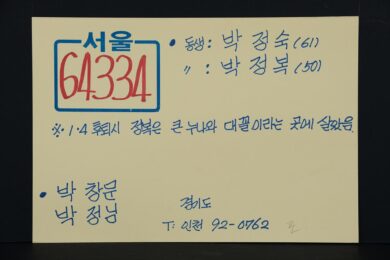 서울
64334
• 동생: 박 정숙 (61)
〃 : 박 정복 (50)
※ 1·4 후퇴시 정복은 큰 누나와 대꼴이라는 곳에 살았음
• 박 창문
박 정님
경기도
T: 인천 92-0762